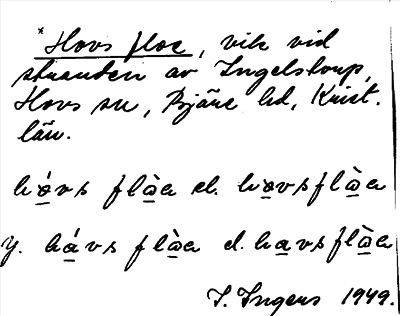 * Hovs floe, vik vid
stranden av Ingelstorp,
Hovs sn, Bjäre hd, Krist.
län.
hóvs flòa el. hovsflòa
y. hávs flòa el. havsflòa
I. Ingers 1949.